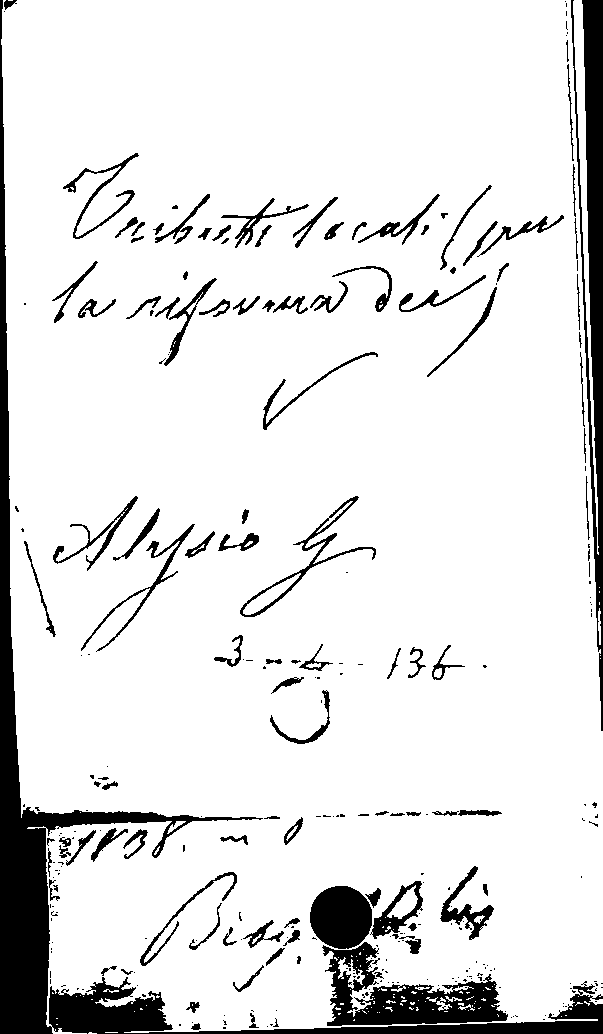 Tributi locali (per
la riforma dei)
Alysio G
3 - 6 - 136
1838.
Biog. B.